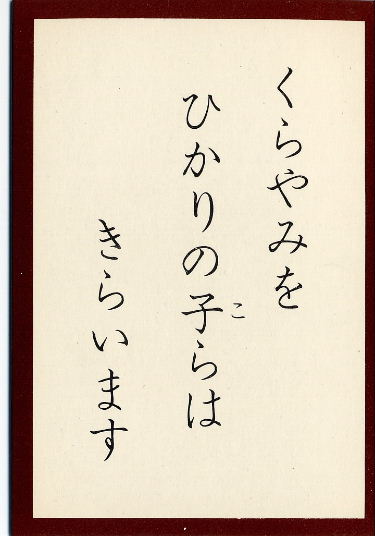 くらやみを
ひかりの子らは
こ
きらいます